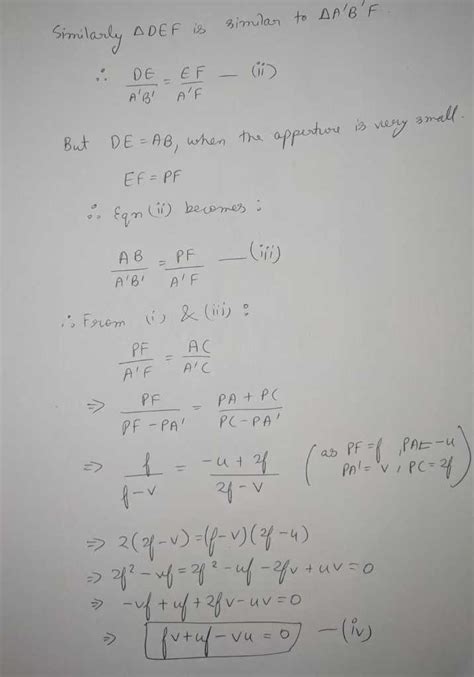 Similarly △DEF is similar to △A'B'F.
∴ DE/A'B' = EF/A'F — (ii)
But DE = AB, when the apperture is very small.
EF = PF
∴ Eqn (ii) becomes :
AB/A'B' = PF/A'F — (iii)
∴ From (i) & (iii) :
PF/A'F = AC/A'C
⇒ PF/PF - PA' = PA + PC/PC - PA'
⇒ f/f-v = -u + 2f/2f - v (as PF = f, PA = -u
PA' = v, PC = 2f)
⇒ 2(2f-v) = (f-v)(2f-u)
⇒ 2f² - vf = 2f² - uf - 2fv + uv = 0
⇒ -vf + uf + 2fv - uv = 0
⇒ fv + uf - vu = 0 — (iv)